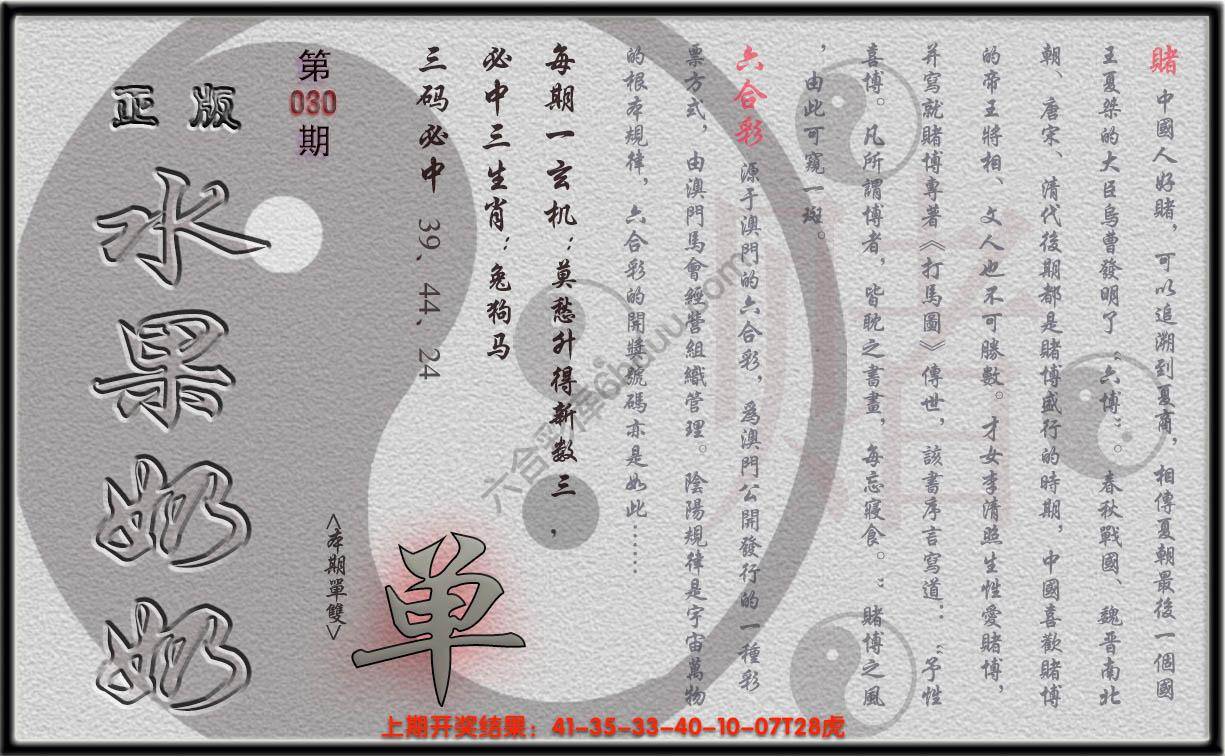 賭 中國人好賭，可以追溯到夏商，相傳夏朝最後一個國
王夏桀的大臣烏曹發明了“六博”。春秋戰國、魏晋南北
朝、唐宋、清代後期都是賭博盛行的時期，中國喜歡賭博
的帝王將相、文人也不可勝數。才女李清照生性愛賭博，
并寫就賭博專著《打馬圖》傳世，該書序言寫道：“予性
喜博。凡所謂博者，皆耽之書畫，每忘寢食。”賭博之風
，由此可窺一斑。
六合彩 源于澳門的六合彩，爲澳門公開發行的一種彩
票方式，由澳門馬會經營組織管理。陰陽規律是宇宙萬物
的根本規律，六合彩的開獎號碼亦是如此……
每期一玄机：莫愁升得新数三，
必中三生肖：兔狗马
三码必中 39、44、24
第
030
期
正版
水果奶奶
<本期單雙>
单
上期开奖结果：41-35-33-40-10-07T28虎